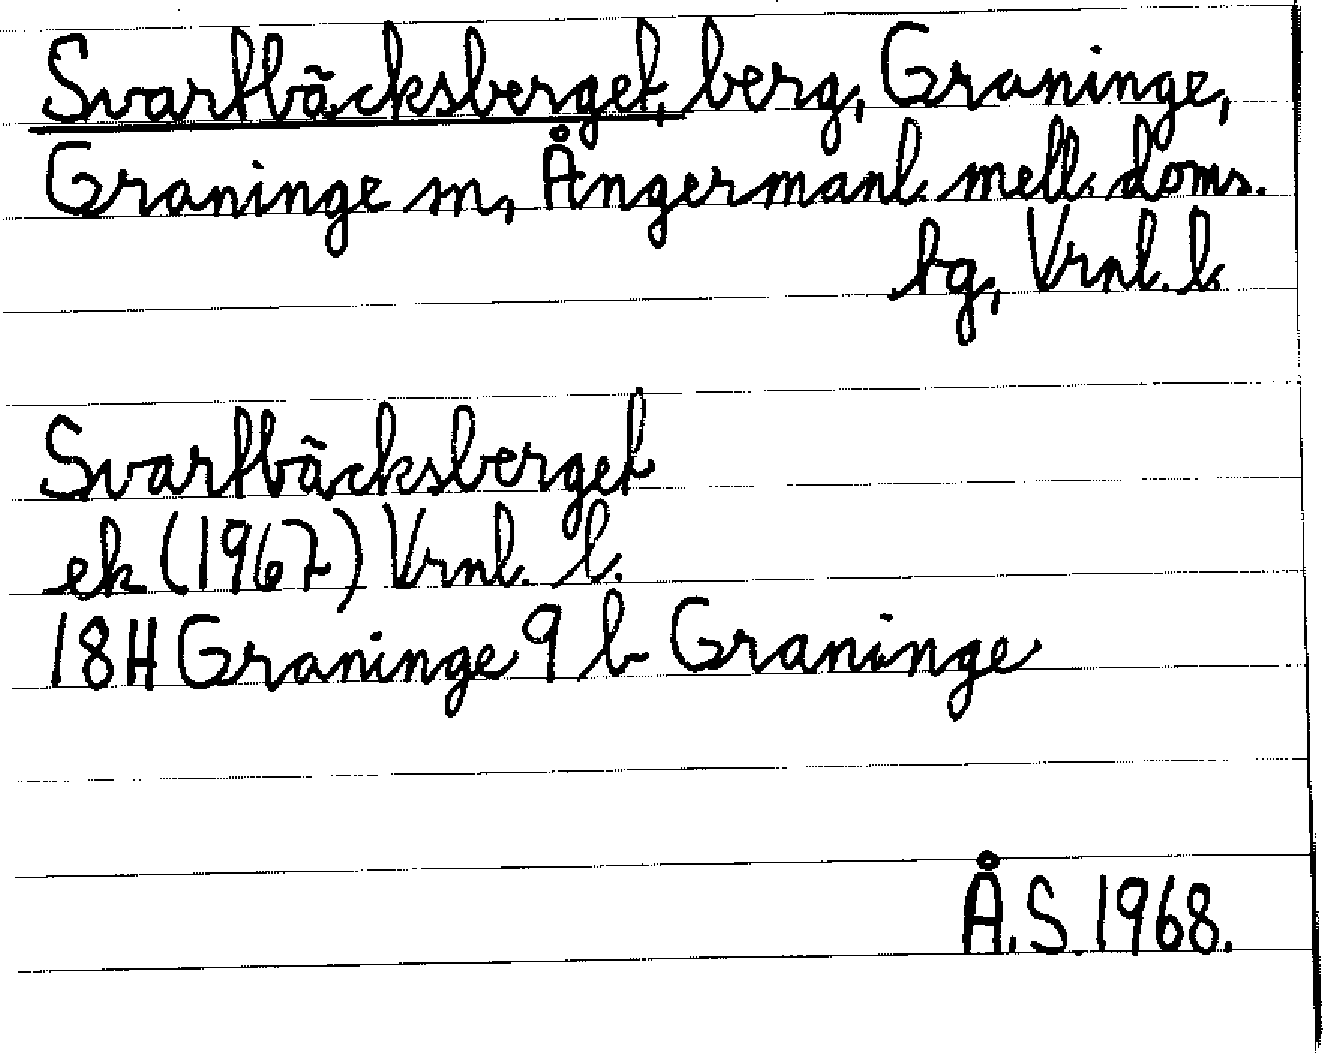 Svartbäcksberget, berg, Graninge,
Graninge sn, Ångermanl. mell. doms.
hg, Vrnl. l.
Svartbäcksberget
ek (1967) Vrnl. l.
18H Graninge 9 b Graninge
Å.S. 1968.